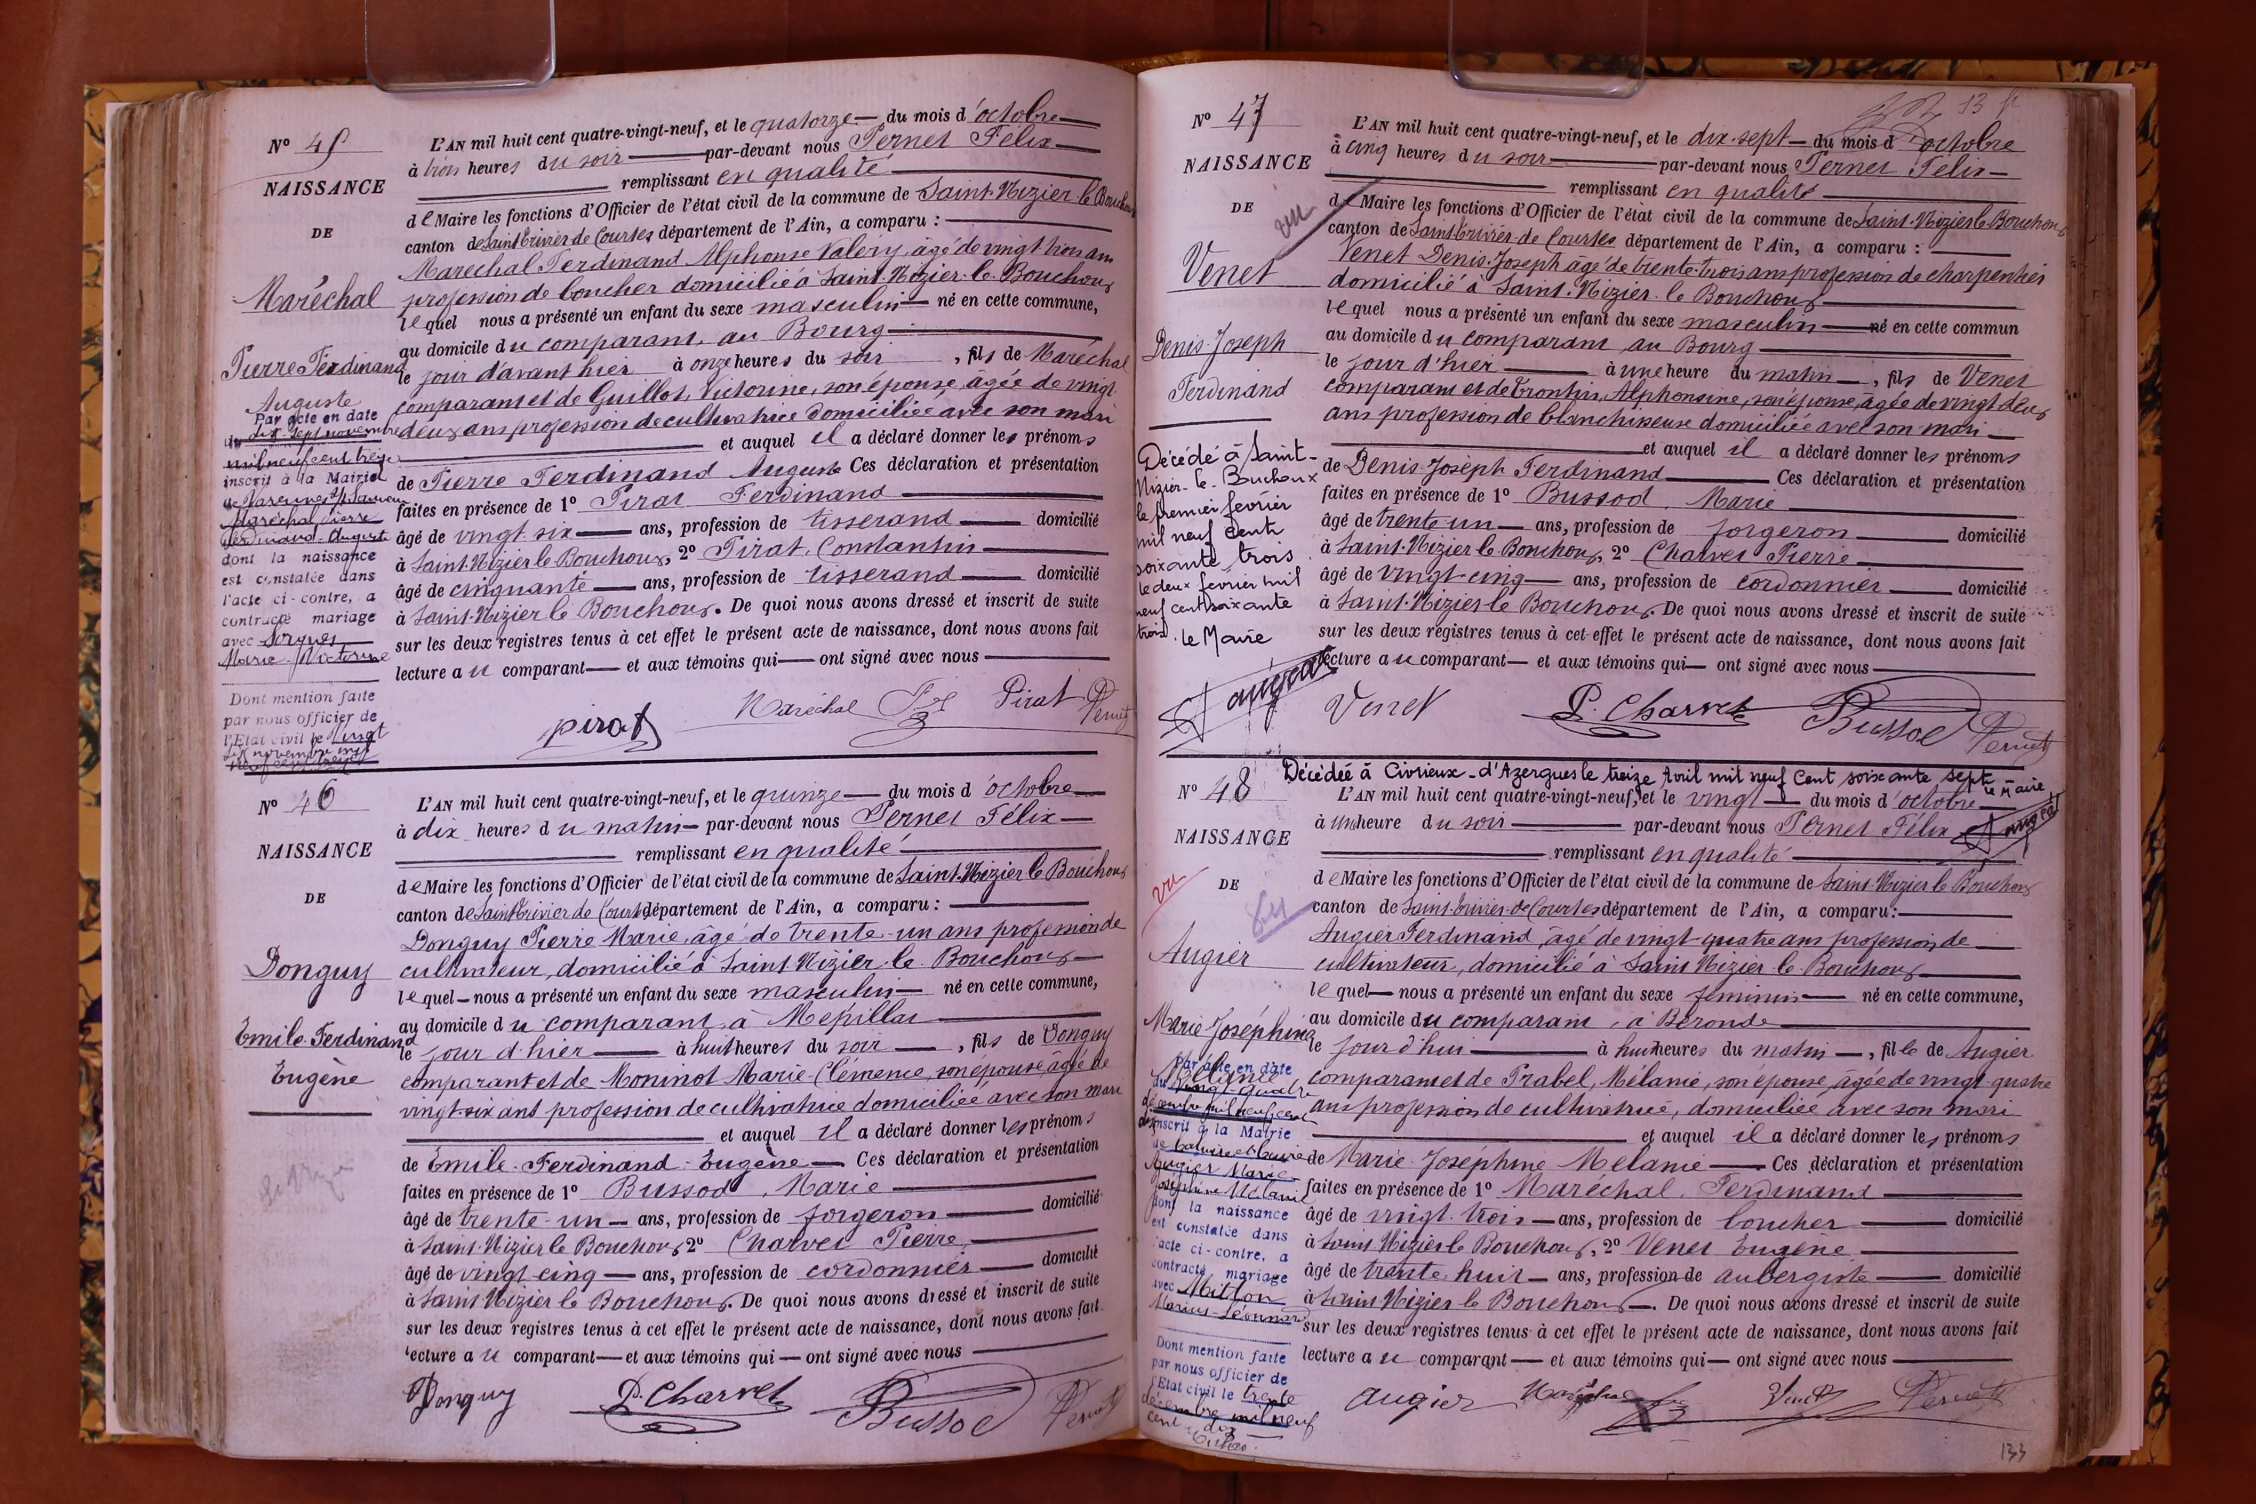 N° 45
NAISSANCE
DE
Maréchal
Pierre Ferdinand
Auguste
Par acte en date
du dix-sept novembre
mil neuf cent treize
inscrit à la Mairie
de Varennes St Sauveur
Maréchal Pierre
Ferdinand Auguste
dont la naissance
est constatée dans
l'acte ci-contre, a
contracté mariage
avec
Marie Victorine
Dont mention faite
par nous officier de
l'Etat civil le vingt
novembre mil
neuf cent treize
L'AN mil huit cent quatre-vingt-neuf, et le quatorze du mois d'octobre
à trois heures du soir par-devant nous Pernet Félix
remplissant en qualité
de Maire les fonctions d'Officier de l'état civil de la commune de Saint-Nizier le Bouchoux
canton de Saint Trivier de Courtes département de l'Ain, a comparu :
Maréchal Ferdinand Alphonse Valery, âgé de vingt trois ans
profession de boucher domicilié à Saint-Nizier-le-Bouchoux
lequel nous a présenté un enfant du sexe masculin né en cette commune,
au domicile du comparant, au Bourg
le jour d'avant hier à onze heures du soir , fils de Maréchal
comparant et de Guillot, Victorine, son épouse, âgée de vingt
deux ans profession de cultivatrice domiciliée avec son mari
et auquel il a déclaré donner les prénoms
de Pierre Ferdinand Auguste Ces déclaration et présentation
faites en présence de 1° Pirat Ferdinand
âgé de vingt six ans, profession de tisserand domicilié
à Saint-Nizier le Bouchoux, 2° Pirat, Constantin
âgé de cinquante ans, profession de tisserand domicilié
à Saint-Nizier le Bouchoux. De quoi nous avons dressé et inscrit de suite
sur les deux registres tenus à cet effet le présent acte de naissance, dont nous avons fait
lecture au comparant et aux témoins qui ont signé avec nous
pirat Maréchal Fd Pirat Pernet
N° 46
NAISSANCE
DE
Donguy
Émile-Ferdinand
Eugène
L'AN mil huit cent quatre-vingt-neuf, et le quinze du mois d'octobre
à dix heures du matin par-devant nous Pernet Félix
remplissant en qualité
de Maire les fonctions d'Officier de l'état civil de la commune de Saint-Nizier le Bouchoux
canton de Saint Trivier de Courtes département de l'Ain, a comparu :
Donguy Pierre Marie, âgé de trente-un ans profession de
cultivateur, domicilié à Saint Nizier le Bouchoux
lequel nous a présenté un enfant du sexe masculin né en cette commune,
au domicile du comparant, à Mépillat
le jour d'hier à huit heures du soir , fils de Donguy
comparant et de Moninot Marie-Clémence, son épouse âgée de
vingt-six ans profession de cultivatrice domiciliée avec son mari
et auquel il a déclaré donner les prénoms
de Émile-Ferdinand-Eugène Ces déclaration et présentation
faites en présence de 1° Bussod, Marie
âgé de trente-un ans, profession de forgeron domicilié
à Saint-Nizier le Bouchoux, 2° Charvet Pierre,
âgé de vingt-cinq ans, profession de cordonnier domicilié
à Saint Nizier le Bouchoux. De quoi nous avons dressé et inscrit de suite
sur les deux registres tenus à cet effet le présent acte de naissance, dont nous avons fait
lecture au comparant et aux témoins qui ont signé avec nous
Donguy P. Charvet Bussod Pernet
13
N° 47
NAISSANCE
DE
vu
Venet
Denis-Joseph
Ferdinand
Décédé à Saint-
Nizier-le-Bouchoux
le premier février
mil neuf cent
soixante trois
le deux février mil
neuf cent soixante
trois. le Maire
L'AN mil huit cent quatre-vingt-neuf, et le dix-sept du mois d'octobre
à cinq heures du soir par-devant nous Pernet Félix
remplissant en qualité
de Maire les fonctions d'Officier de l'état civil de la commune de Saint-Nizier le Bouchoux
canton de Saint Trivier-de Courtes département de l'Ain, a comparu :
Venet Denis-Joseph âgé de trente-trois ans profession de charpentier
domicilié à Saint-Nizier-le Bouchoux
lequel nous a présenté un enfant du sexe masculin né en cette commun
au domicile du comparant au Bourg
le jour d'hier à une heure du matin , fils de Venet
comparant et de Trontin, Alphonsine, son épouse, âgée de vingt deux
ans profession de blanchisseuse domiciliée avec son mari
et auquel il a déclaré donner les prénoms
de Denis Joseph Ferdinand Ces déclaration et présentation
faites en présence de 1° Bussod, Marie
âgé de trente un ans, profession de forgeron domicilié
à Saint-Nizier le Bouchoux, 2° Charvet Pierre
âgé de vingt-cinq ans, profession de cordonnier domicilié
à Saint-Nizier-le Bouchoux. De quoi nous avons dressé et inscrit de suite
sur les deux registres tenus à cet effet le présent acte de naissance, dont nous avons fait
lecture au comparant et aux témoins qui ont signé avec nous
Venet P. Charvet Bussod Pernet
Décédée à Civrieux-d'Azergues le treize Avril mil neuf Cent soixante sept
le Maire
N° 48
NAISSANCE
DE
vu
Augier
Marie Joséphine
Mélanie
Par acte en date
du vingt-quatre
décembre mil neuf cent
dix inscrit à la Mairie
de
Augier Marie
Joséphine Mélanie
dont la naissance
est constatée dans
l'acte ci-contre, a
contracté mariage
avec Millon
Marius-Léonnard
Dont mention faite
par nous officier de
l'Etat civil le trente
décembre mil neuf
cent dix
L'AN mil huit cent quatre-vingt-neuf, et le vingt du mois d'octobre
à une heure du soir par-devant nous Pernet Félix
remplissant en qualité
de Maire les fonctions d'Officier de l'état civil de la commune de Saint-Nizier le Bouchoux
canton de Saint-Trivier-de Courtes département de l'Ain, a comparu :
Augier Ferdinand, âgé de vingt-quatre ans profession de
cultivateur, domicilié à Saint Nizier-le Bouchoux
lequel nous a présenté un enfant du sexe féminin né en cette commune,
au domicile du comparant, à Béronde
le jour d'hui à huit heures du matin , fille de Augier
comparant et de Prabel, Mélanie, son épouse, âgée de vingt-quatre
ans profession de cultivatrice, domiciliée avec son mari
et auquel il a déclaré donner les prénoms
de Marie-Joséphine Mélanie Ces déclaration et présentation
faites en présence de 1° Maréchal, Ferdinand
âgé de vingt-trois ans, profession de boucher domicilié
à Saint Nizier le Bouchoux, 2° Venet Eugène
âgé de trente-huit ans, profession de aubergiste domicilié
à Saint Nizier le Bouchoux. De quoi nous avons dressé et inscrit de suite
sur les deux registres tenus à cet effet le présent acte de naissance, dont nous avons fait
lecture au comparant et aux témoins qui ont signé avec nous
augier Maréchal Venet Pernet
133